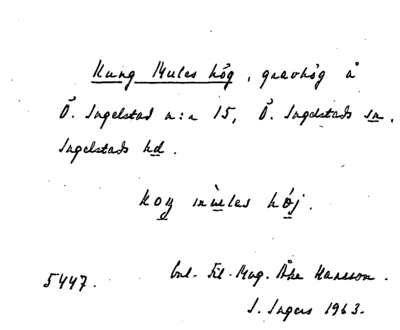 Kung Mules hög, gravhög å
Ö. Ingelstad n:r 15, Ö. Ingelstads sn.
Ingelstads hd.
koŋ mùles hój.
5447. Enl. Fil. Mag. Åke Hansson.
I. Ingers 1963.